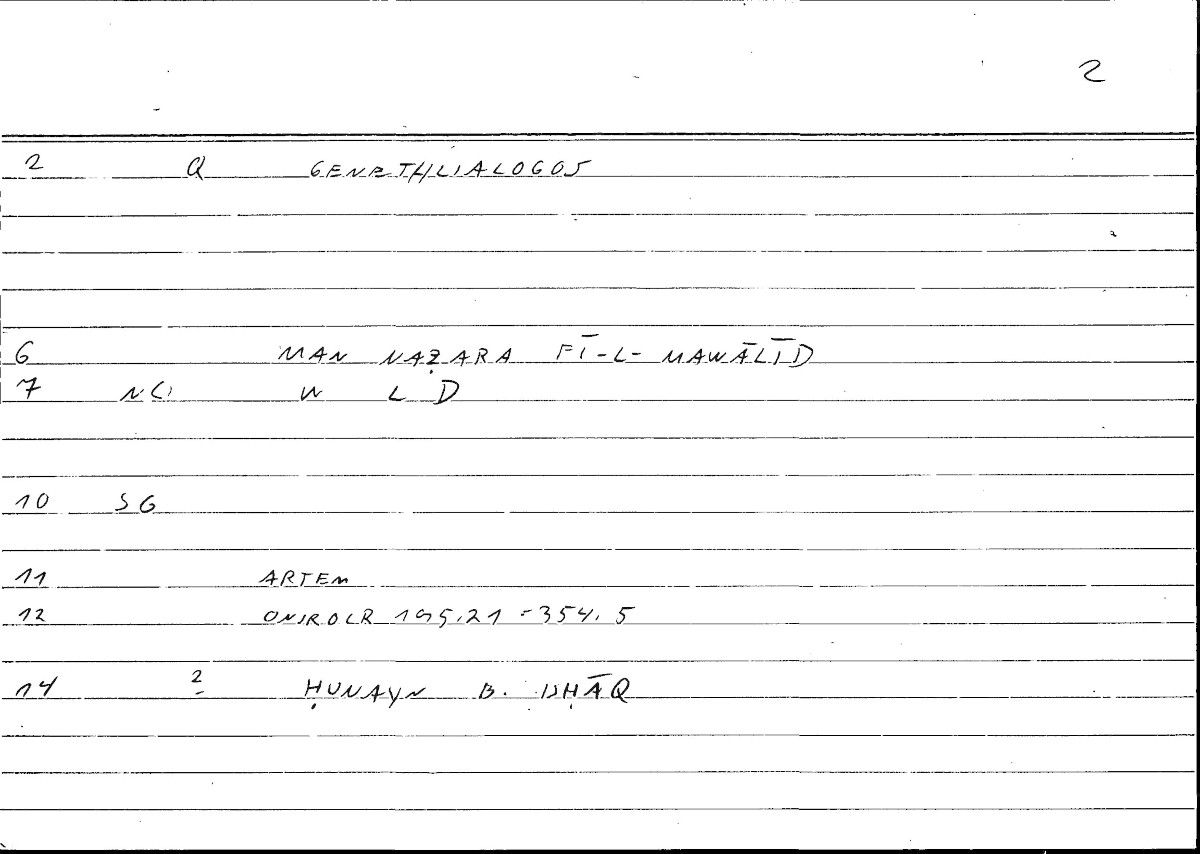 2
2 Q GENETHLIALOGOS
6 MAN NAẒARA FĪ-L-MAWĀLĪD
7 NCI W L D
10 SG
11 ARTEM
12 ONIROCR 195.21 = 354.5
14 2 ḤUNAYN B. ISḤĀQ